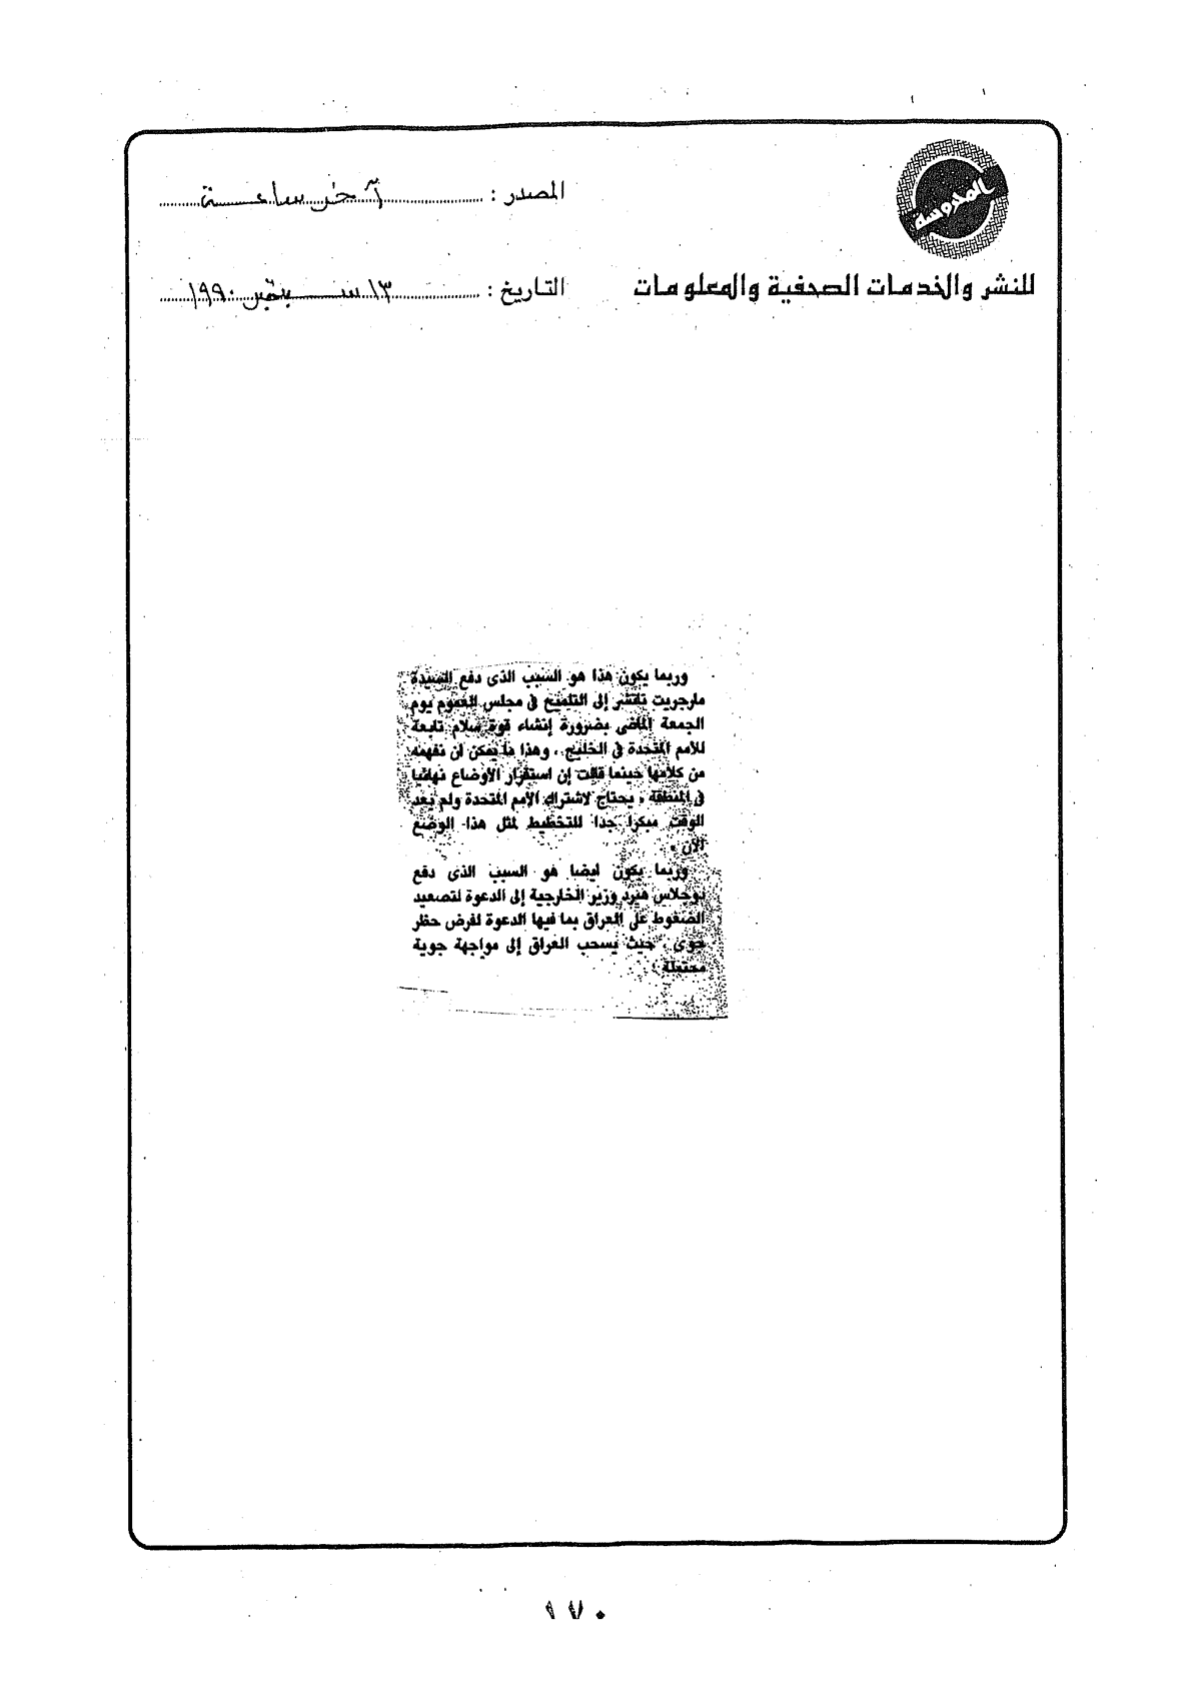 المحروسة
المصدر : آخر ساعة
للنشر والخدمات الصحفية والمعلومات
التاريخ : ١٣ سبتمبر ١٩٩٠
وربما يكون هذا هو السبب الذى دفع السيدة
مارجريت تاتشر إلى التلميح فى مجلس العموم يوم
الجمعة الماضى بضرورة إنشاء قوة سلام تابعة
للأمم المتحدة فى الخليج ، وهذا ما يمكن ان نفهمه
من كلامها حينما قالت إن استقرار الأوضاع نهائيا
فى المنطقة ، يحتاج لاشتراك الأمم المتحدة ولم يعد
الوقت مبكرا جدا للتخطيط لمثل هذا الوضع
الآن .
وربما يكون ايضا هو السبب الذى دفع
دوجلاس هيرد وزير الخارجية إلى الدعوة لتصعيد
الضغوط على العراق بما فيها الدعوة لفرض حظر
جوى ، حيث يسحب العراق إلى مواجهة جوية
محتملة !